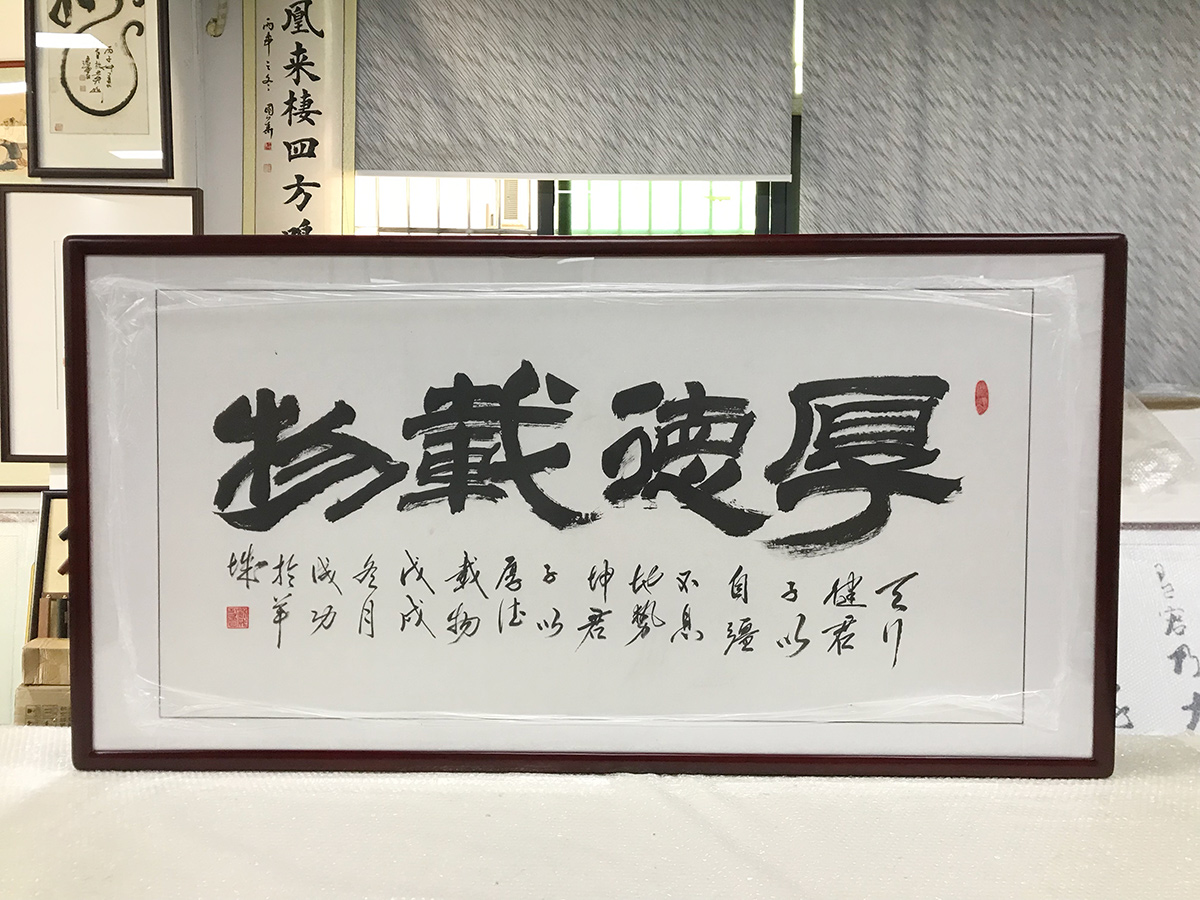 厚德載物
天行
健君
子以
自疆
不息
地勢
坤君
子以
厚德
載物
戊戌
冬月
成功
於羊
城
凰来棲四方鳴
丙申之冬